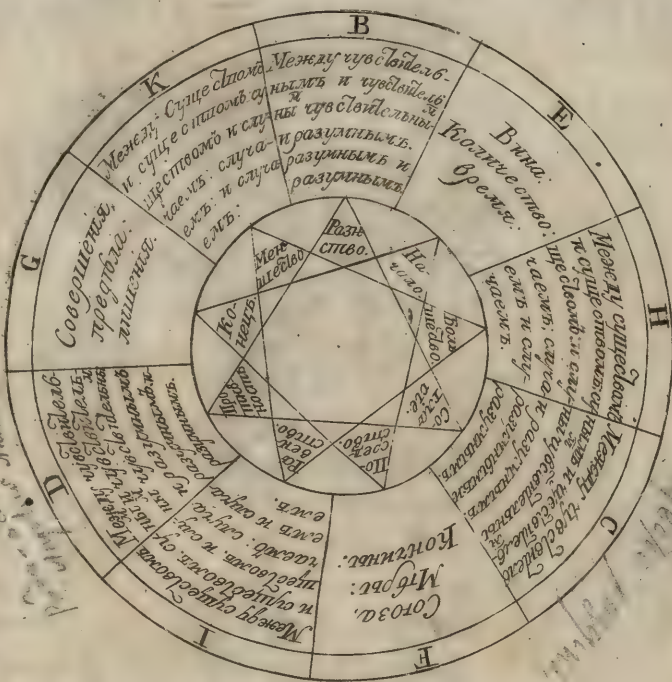 B
Между чувствитель-
нымъ и чувствитель
ны м чувствительны м
и разумнымъ.
разумнымъ и
разумнымъ.
E
Вина.
Количество:
время.
H
Между существомъ
и существомъ: су
ществомъ: и слу
чаемъ, случа
емъ и слу
чаемъ.
C
Между чувствитель
нымъ и чувствитель
ны м чувствительны м
и разумнымъ
разумнымъ и
разумнымъ
F
Союза,
Мѣры:
Кончины.
I
Между существомъ
и существомъ. су
ществомъ и слу
чаемъ: случа
емъ и случа
емъ.
D
Между чувствитель
ны м и чувствитель
ны м чувствительны м
и разумнымъ
разумнымъ и
разумнымъ.
G
Совершения,
предѣла:
лишения.
K
Между Существомъ
и существомъ су
ществомъ и слу
чаемъ: случа-
емъ: и случа
емъ:
Разн
ство.
На
чало.
Боль
шество.
Со
гла
сие.
По
сред
ство.
Ра
вен
ство.
Про
тив
ность
Ко
нецъ.
Мен
шество